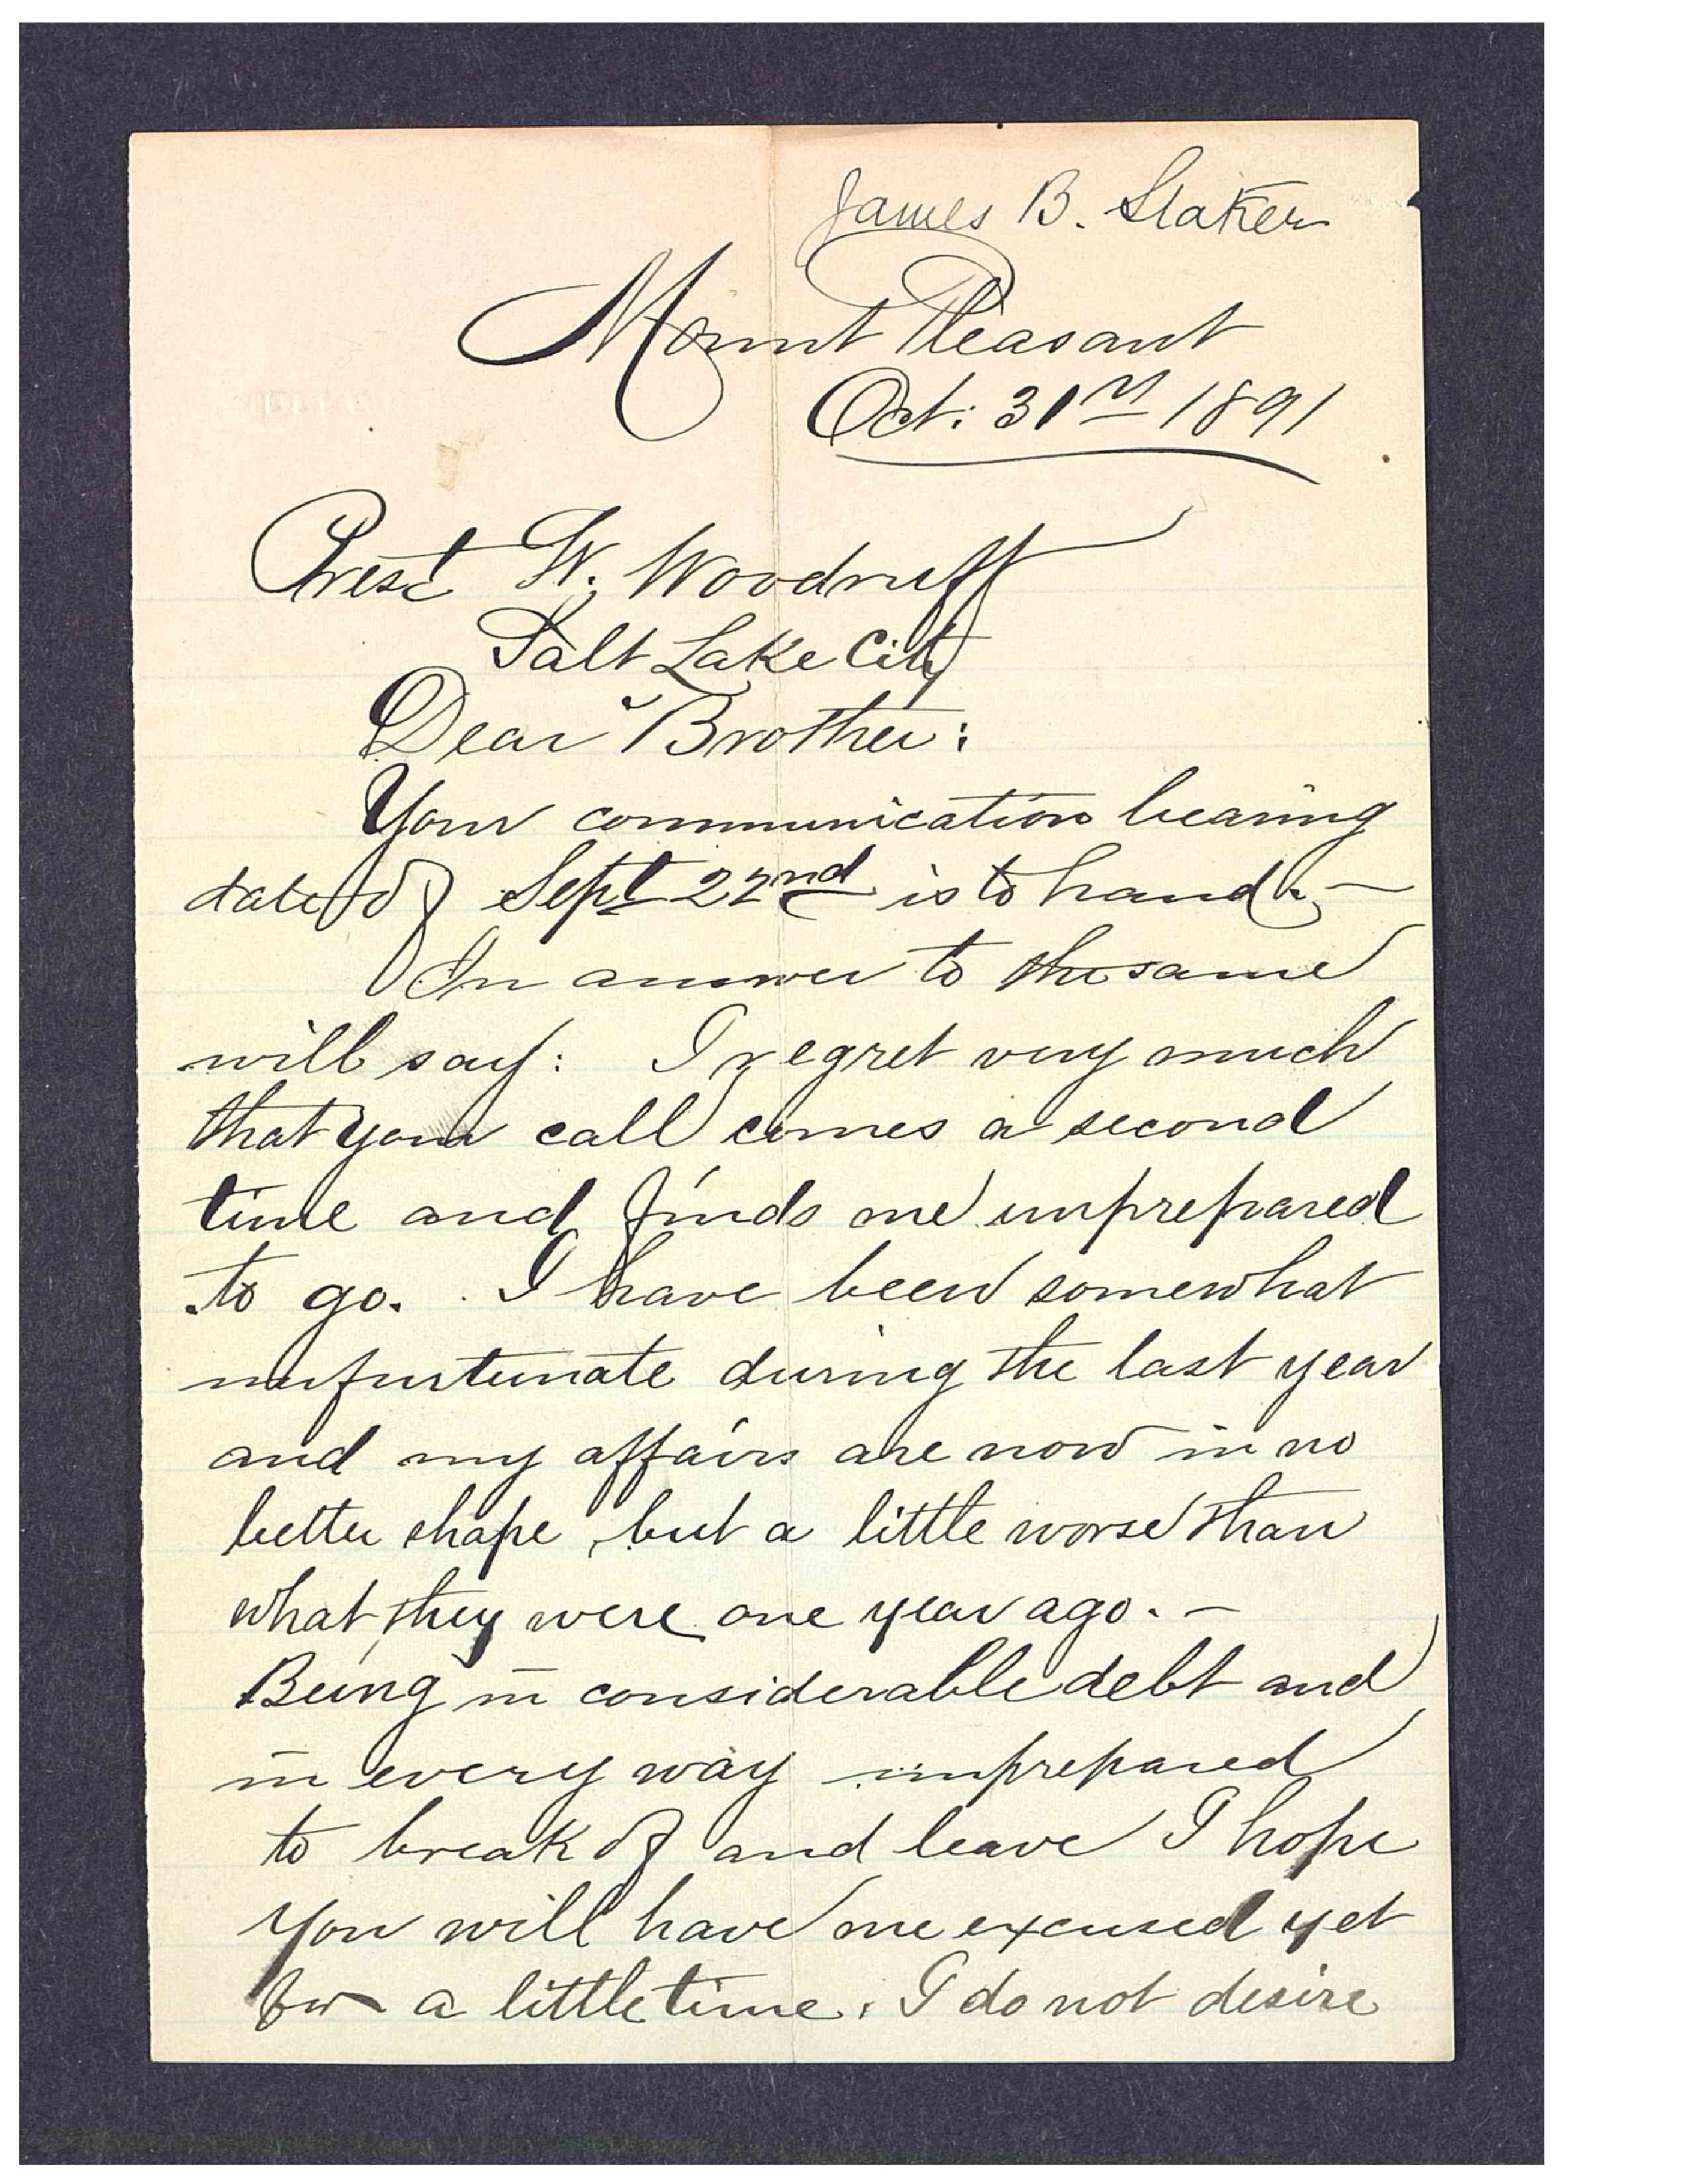 James B. Staker
Mount Pleasant
Oct: 31st 1891
Prest W. Woodruff
Salt Lake City
Dear Brother:
Your communication bearing
date of Sept 22nd is to hand. —
In answer to the same
will say: I regret very much
that your call comes a second
time and finds me unprepared
to go. I have been somewhat
unfortunate during the last year
and my affairs are now in no
better shape, but a little worse than
what they were one year ago. —
Being in considerable debt and
in every way unprepared
to break of and leave I hope
you will have me excused yet
for a little time. I do not desire